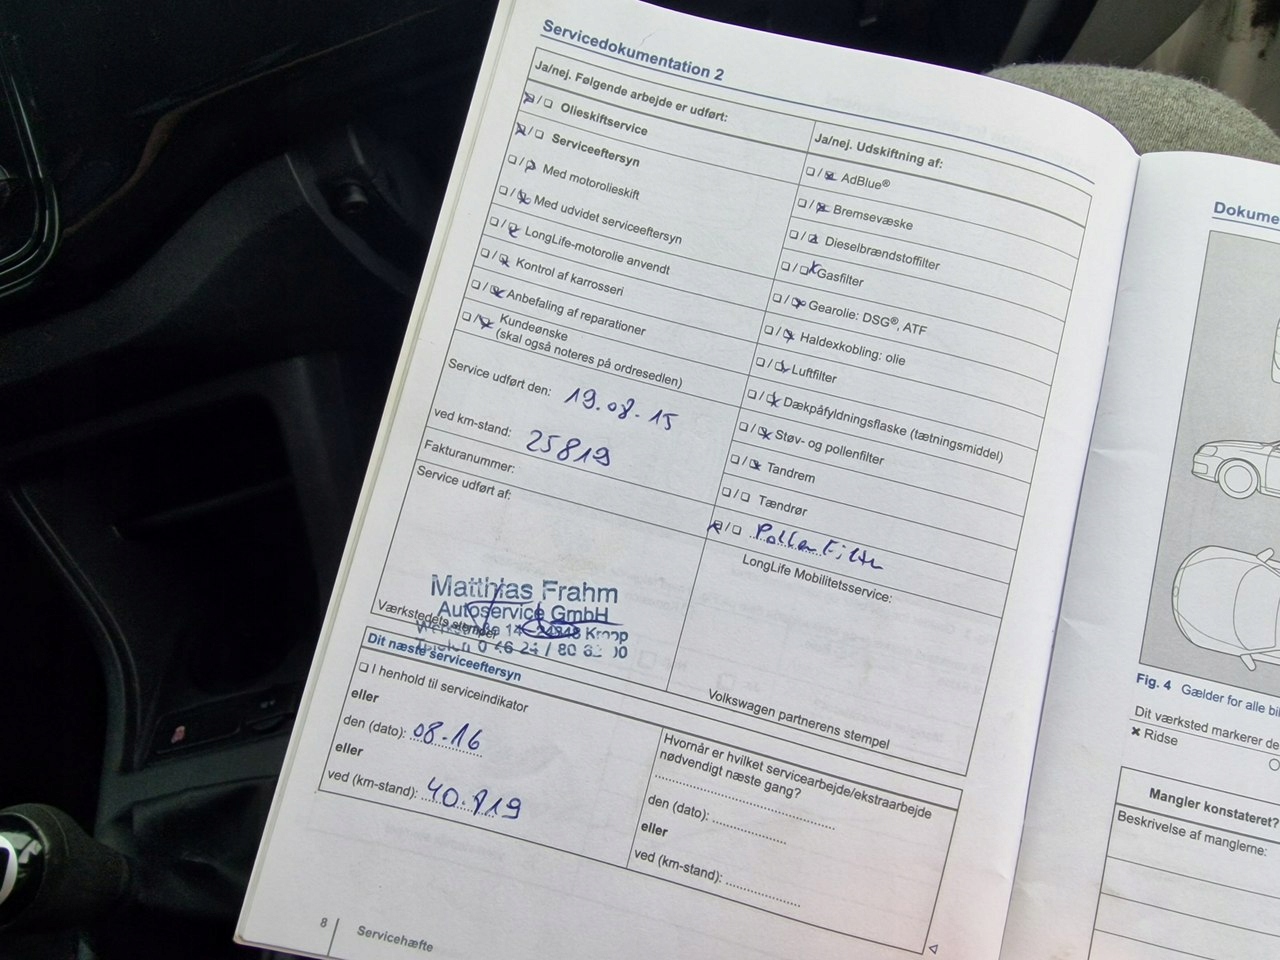 Servicedokumentation 2
Ja/nej. Følgende arbejde er udført:
Olieskiftservice
Serviceeftersyn
Med motorolieskift
Med udvidet serviceeftersyn
LongLife-motorolie anvendt
Kontrol af karrosseri
Anbefaling af reparationer
Kundeønske
(skal også noteres på ordresedlen)
Service udført den: 19.08.15
ved km-stand: 25819
Fakturanummer:
Service udført af:
Matthias Frahm
Autoservice GmbH
14 - 24848 Kropp
Telefon 0 46 24 / 80 82 00
Værkstedets stempel
Ja/nej. Udskiftning af:
AdBlue®
Bremsevæske
Dieselbrændstoffilter
Gasfilter
Gearolie: DSG®, ATF
Haldexkobling: olie
Luftfilter
Dækpåfyldningsflaske (tætningsmiddel)
Støv- og pollenfilter
Tandrem
Tændrør
Pollenfilter
LongLife Mobilitetsservice:
Volkswagen partnerens stempel
Dit næste serviceeftersyn
I henhold til serviceindikator
eller
den (dato): 08.16
eller
ved (km-stand): 40.819
Hvornår er hvilket servicearbejde/ekstraarbejde
nødvendigt næste gang?
den (dato):
eller
ved (km-stand):
8
Servicehæfte
Dokume
Fig. 4 Gælder for alle bil
Dit værksted markerer de
Ridse
Mangler konstateret?
Beskrivelse af manglerne: